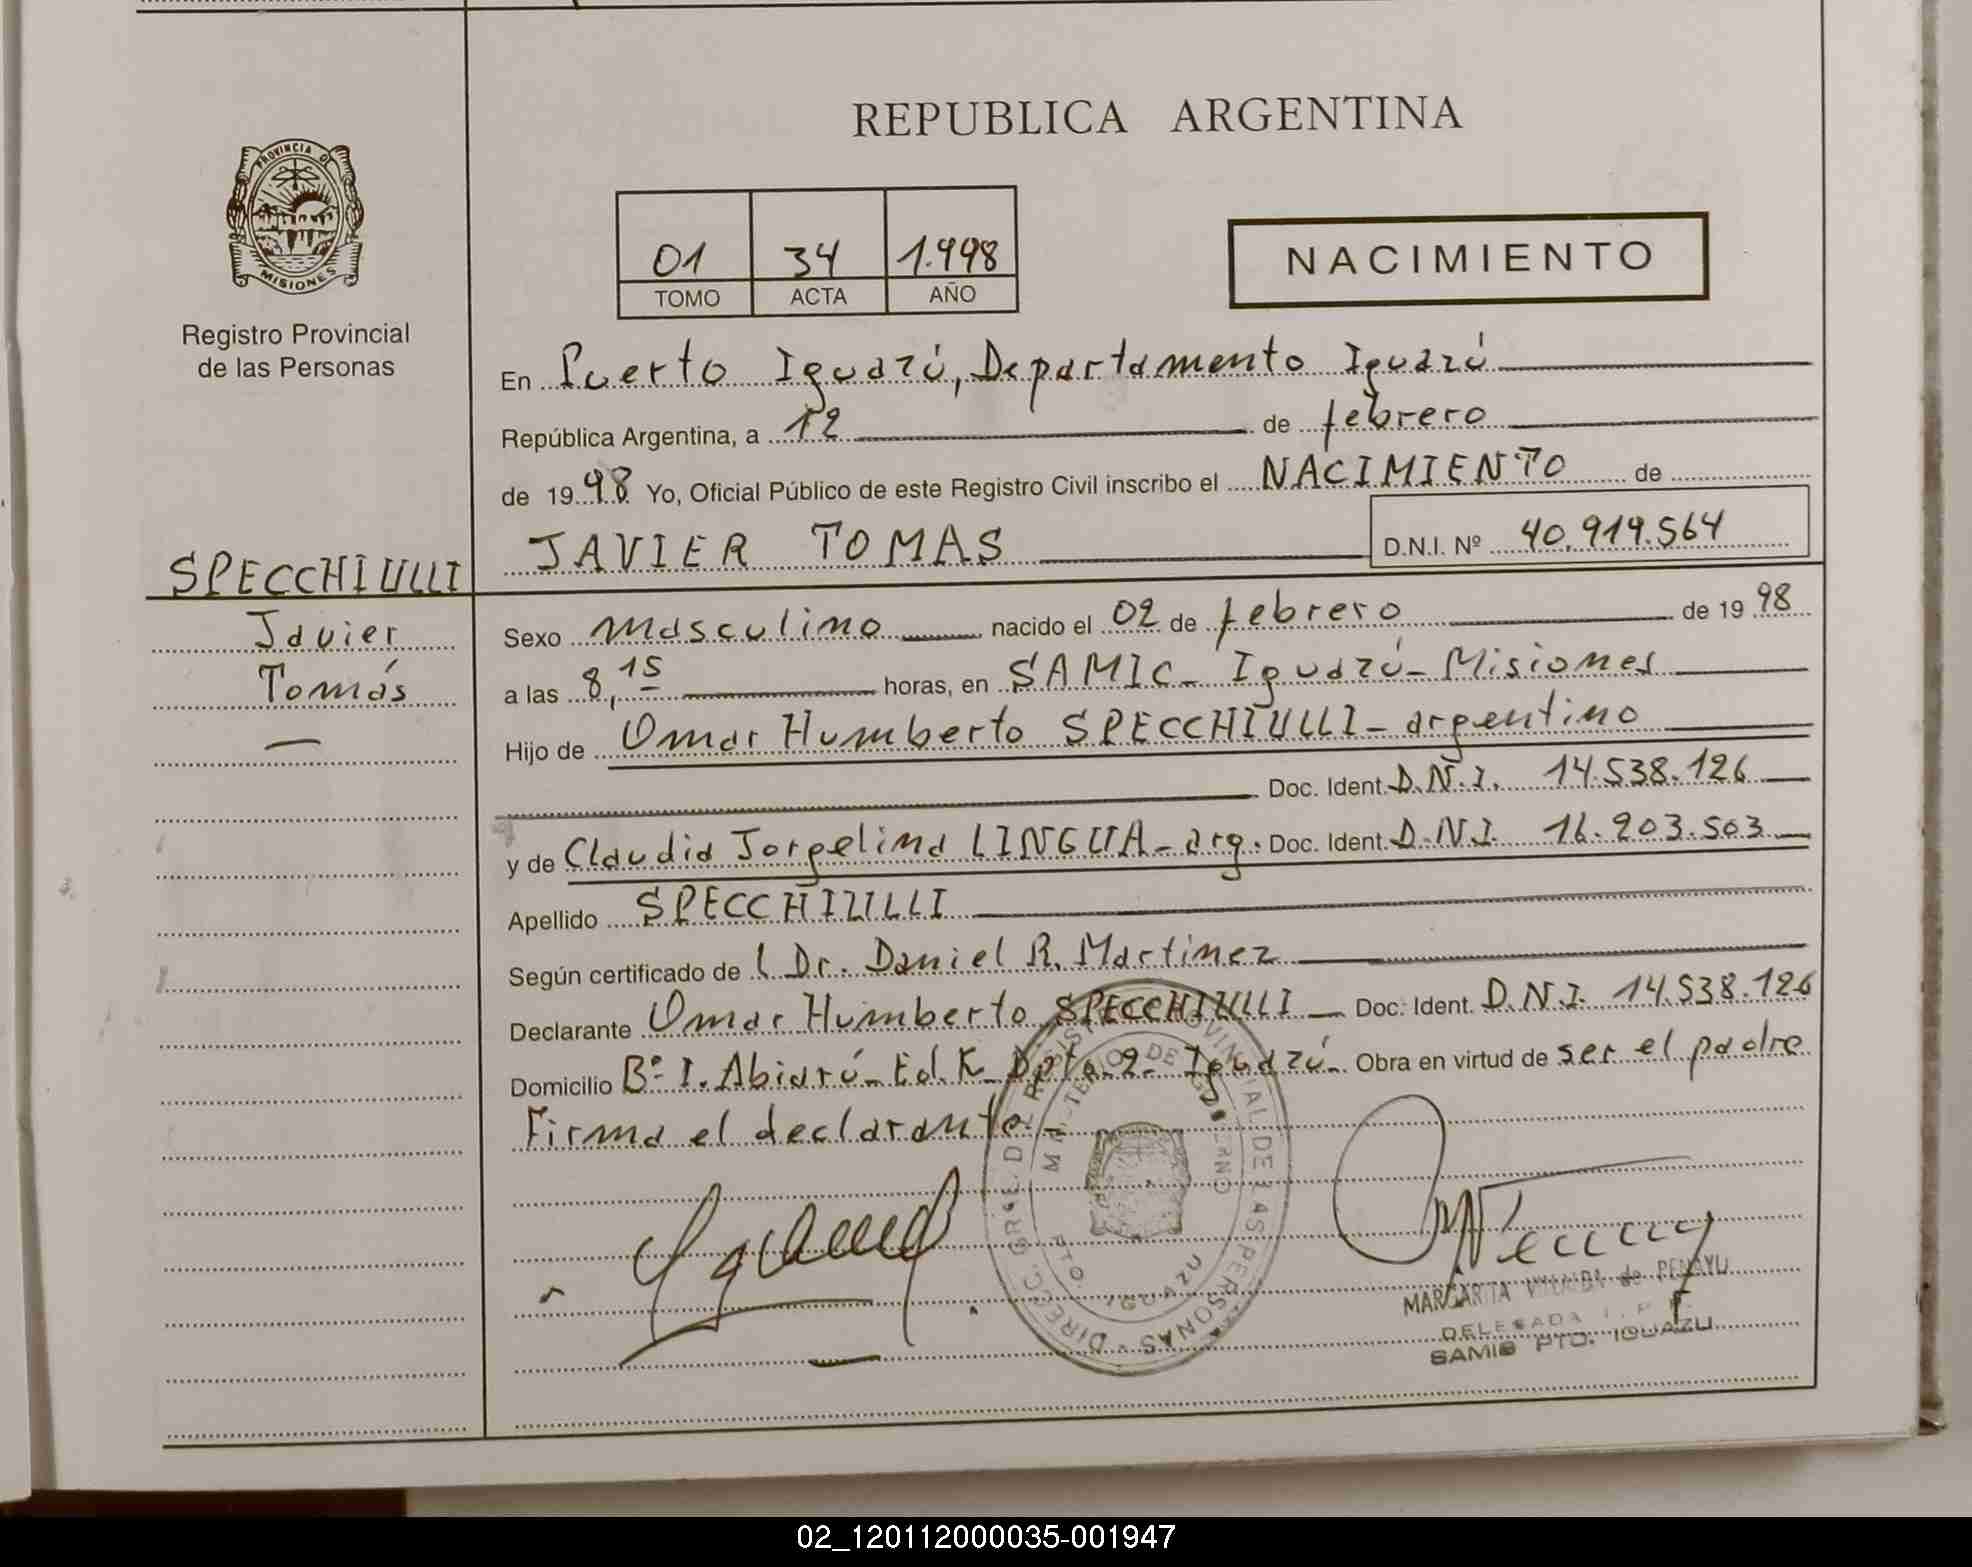 REPUBLICA ARGENTINA
PROVINCIA DE
MISIONES
Registro Provincial
de las Personas
01 34 1.998
TOMO ACTA AÑO
NACIMIENTO
En Puerto Iguazú, Departamento Iguazú
República Argentina, a 12 de febrero
de 1998 Yo, Oficial Público de este Registro Civil inscribo el NACIMIENTO de
JAVIER TOMAS D.N.I. Nº 40.919.564
SPECCHIULLI
Javier
Tomás
Sexo masculino nacido el 02 de febrero de 1998
a las 8,15 horas, en SAMIC - Iguazú - Misiones
Hijo de Omar Humberto SPECCHIULLI - argentino
Doc. Ident. D.N.I. 14.538.126
y de Claudia Jorgelina LINGUA - arg. Doc. Ident. D.N.I. 16.203.503
Apellido SPECCHIULLI
Según certificado de l Dr. Daniel R. Martinez
Declarante Omar Humberto SPECCHIULLI Doc. Ident. D.N.I. 14.538.126
Domicilio Bº I. Abiarú - Ed. K - Dpto. 2 - Iguazú. Obra en virtud de ser el padre
Firma el declarante. -
DIRECC. GRAL. DEL REGISTRO PROVINCIAL DE LAS PERSONAS
MINISTERIO DE GOBIERNO
PTO. IGUAZU
MARGARITA VILLALBA de PENAYU
DELEGADA
SAMIC PTO. IGUAZU
02_120112000035-001947